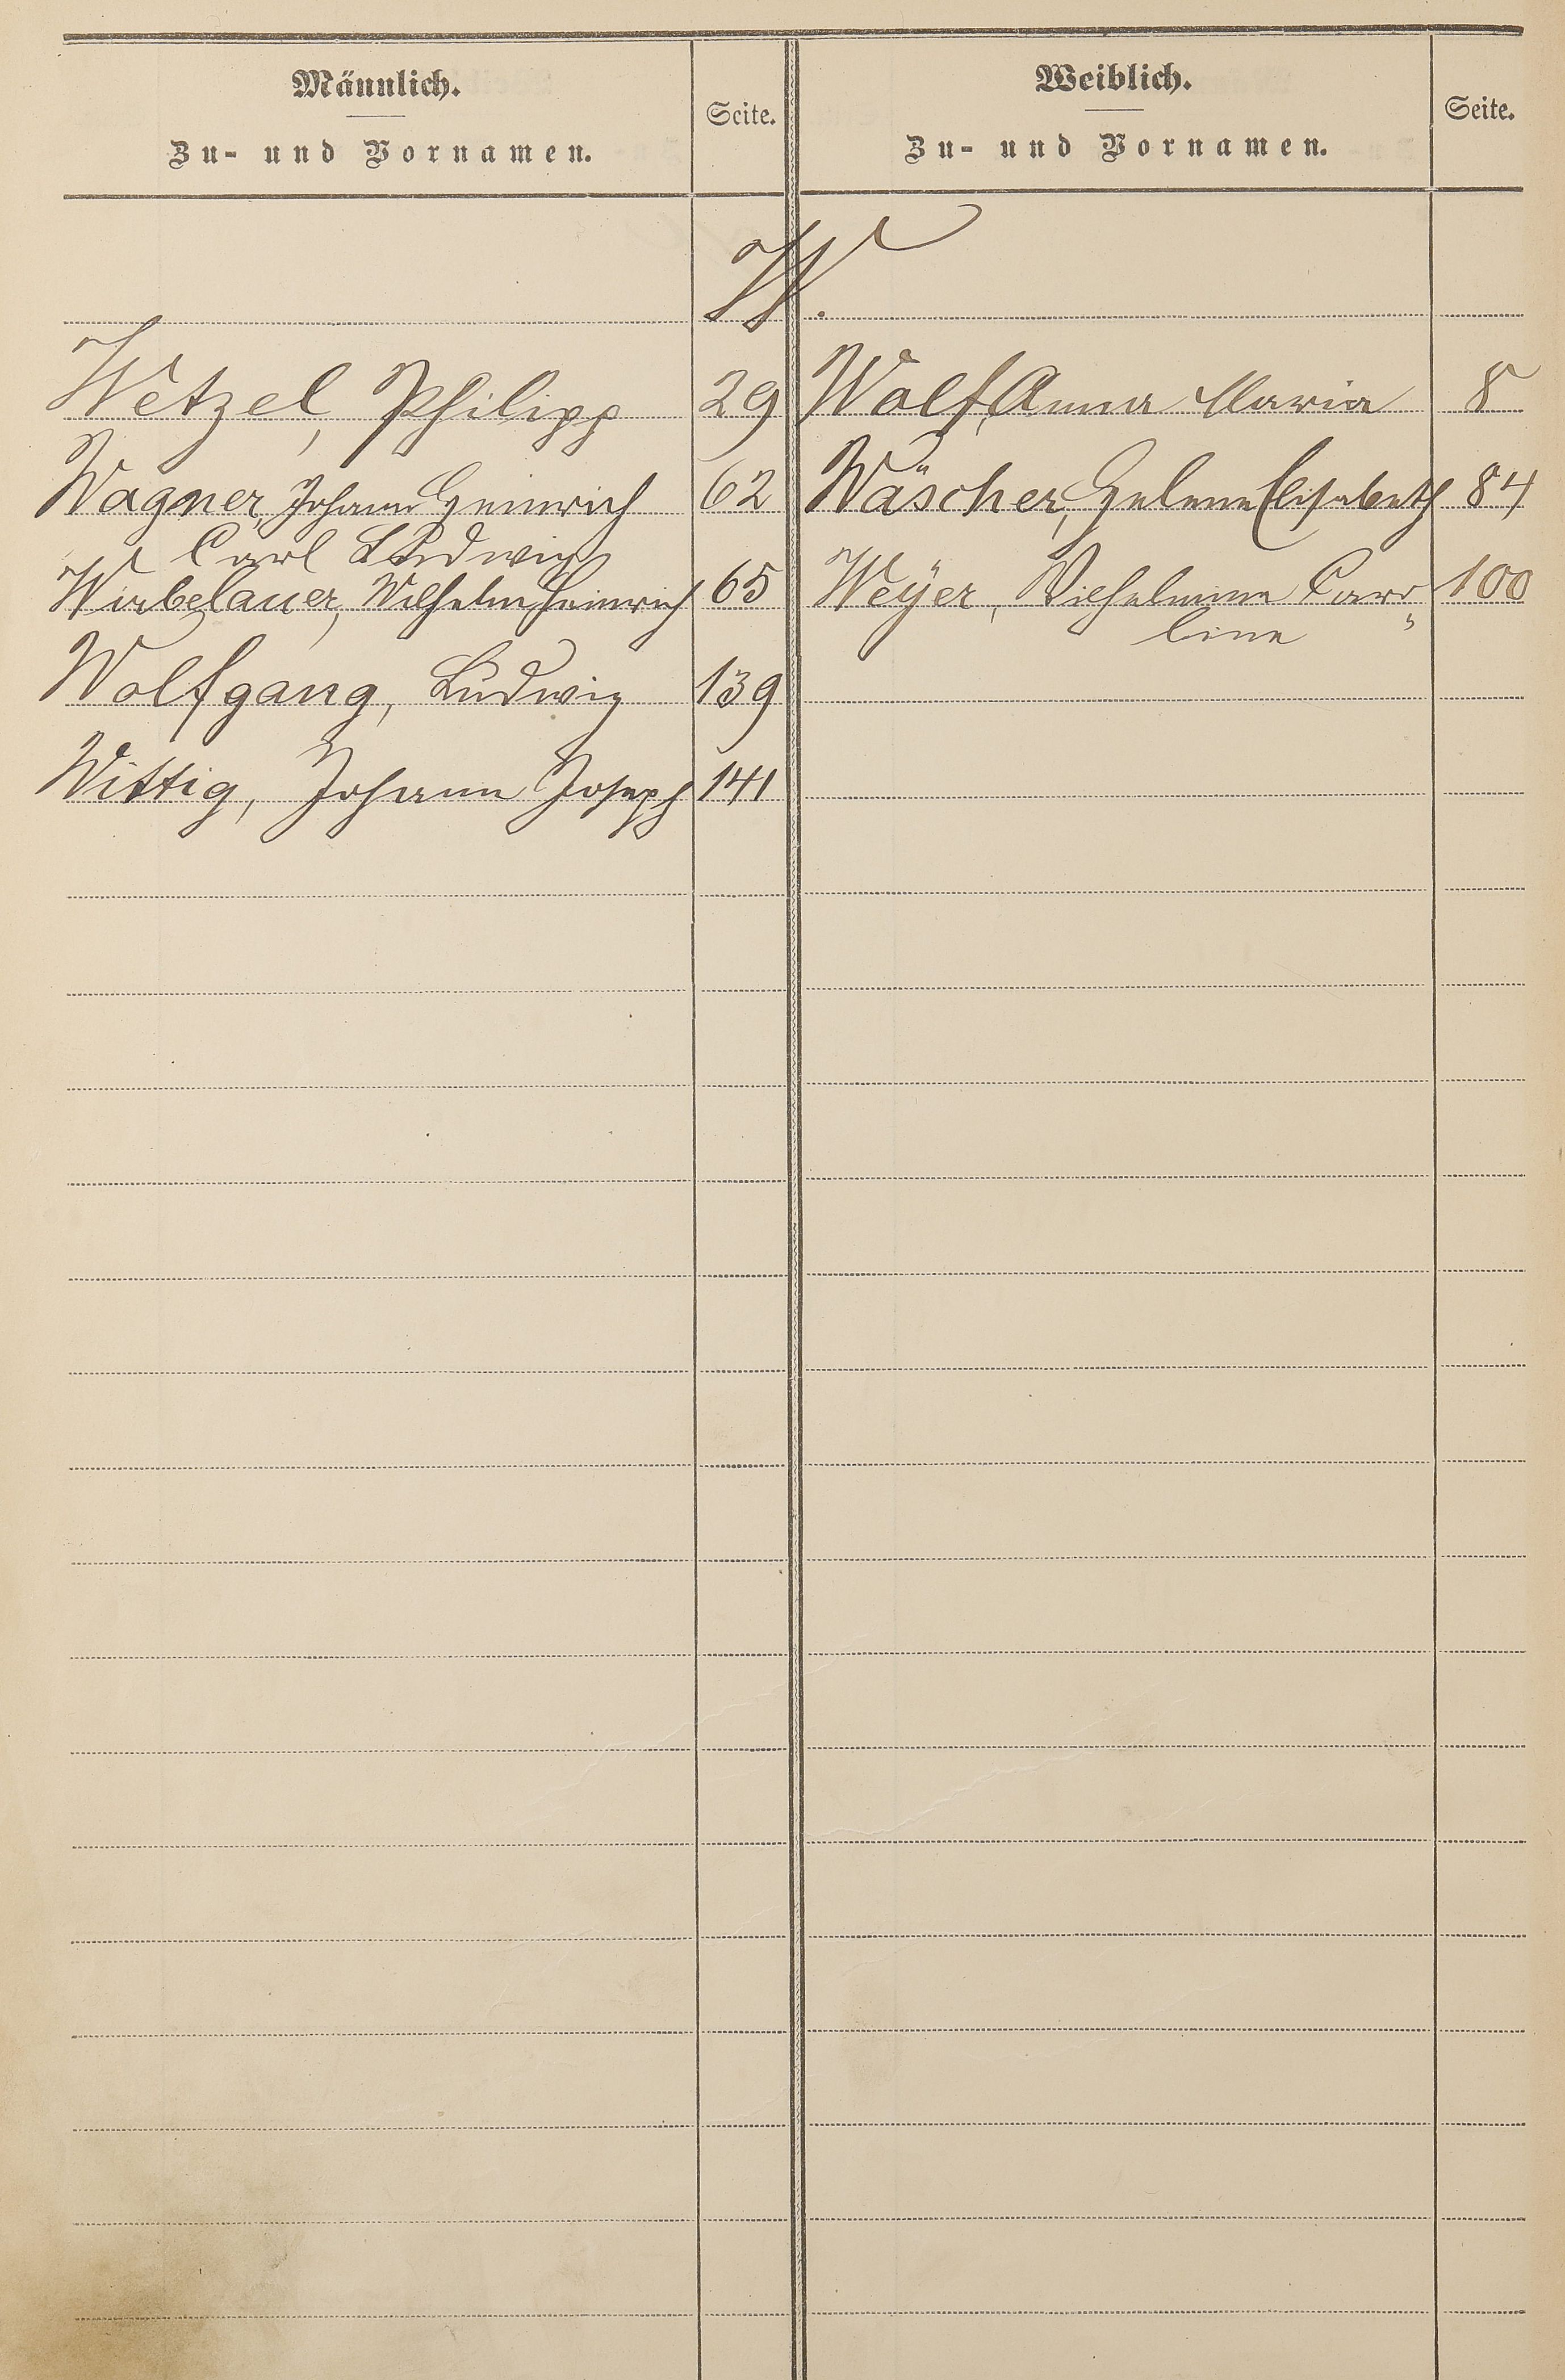 Männlich.
Zu- und Vornamen.
Seite.
Weiblich.
Zu- und Vornamen.
Seite.
W.
Wetzel, Philipp 29
Wagner, Johann Heinrich 62
Carl Ludwig
Wirbelauer, Wilhelm Heinrich 65
Wolfgang, Ludwig 139
Wittig, Johann Joseph 141
Wolf, Anna Maria 8
Wäscher, Helene Elisabeth 84
Weÿer, Wilhelmine Caro„ 100
line